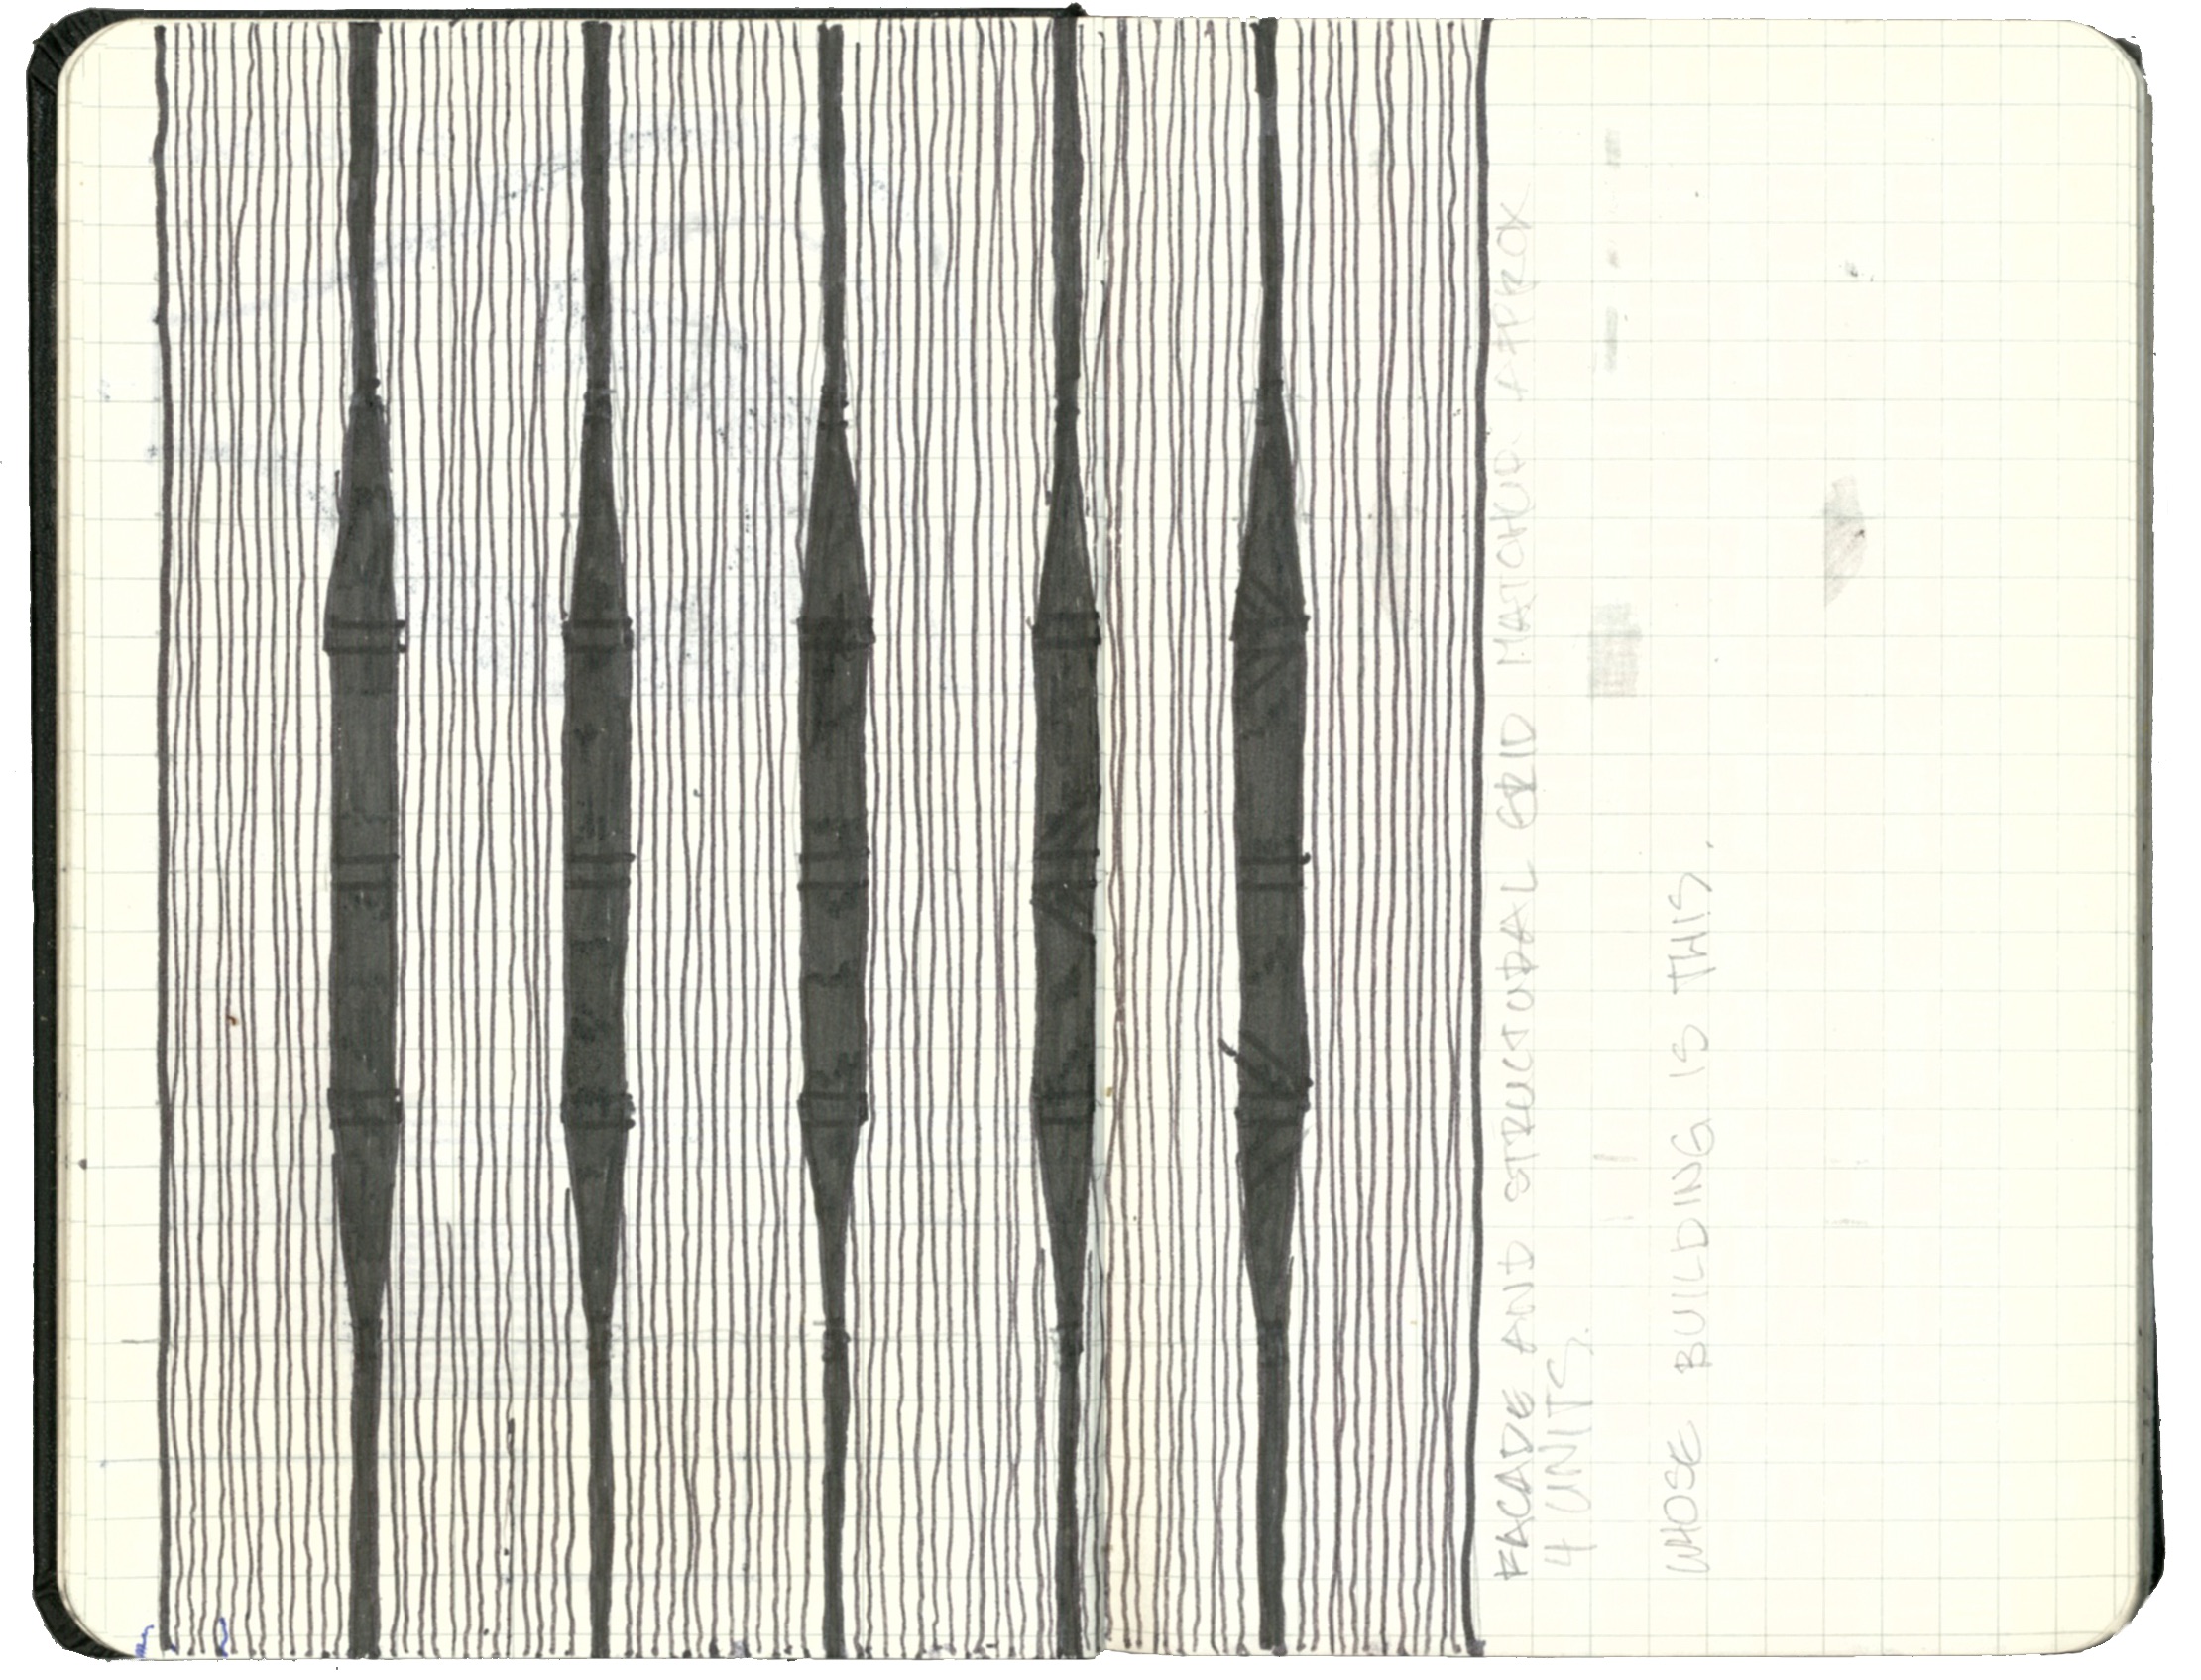 FACADE AND STRUCTURAL GRID MATCHUP APPROX
4 UNITS.
WHOSE BUILDING IS THIS.